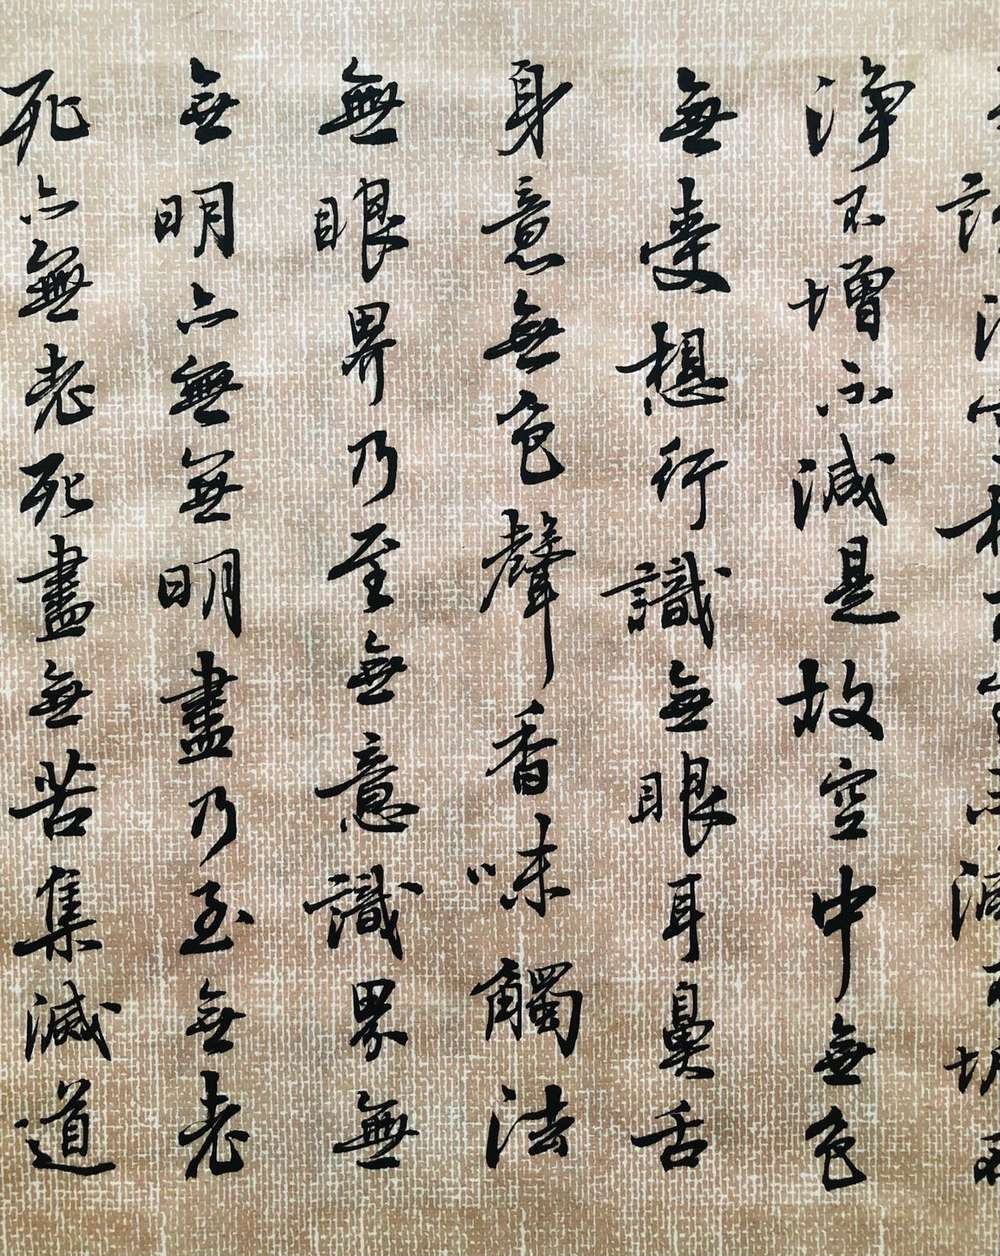 淨不增不減是故空中無色
無受想行識無眼耳鼻舌
身意無色聲香味觸法
無眼界乃至無意識界無
無明亦無無明盡乃至無老
死亦無老死盡無苦集滅道